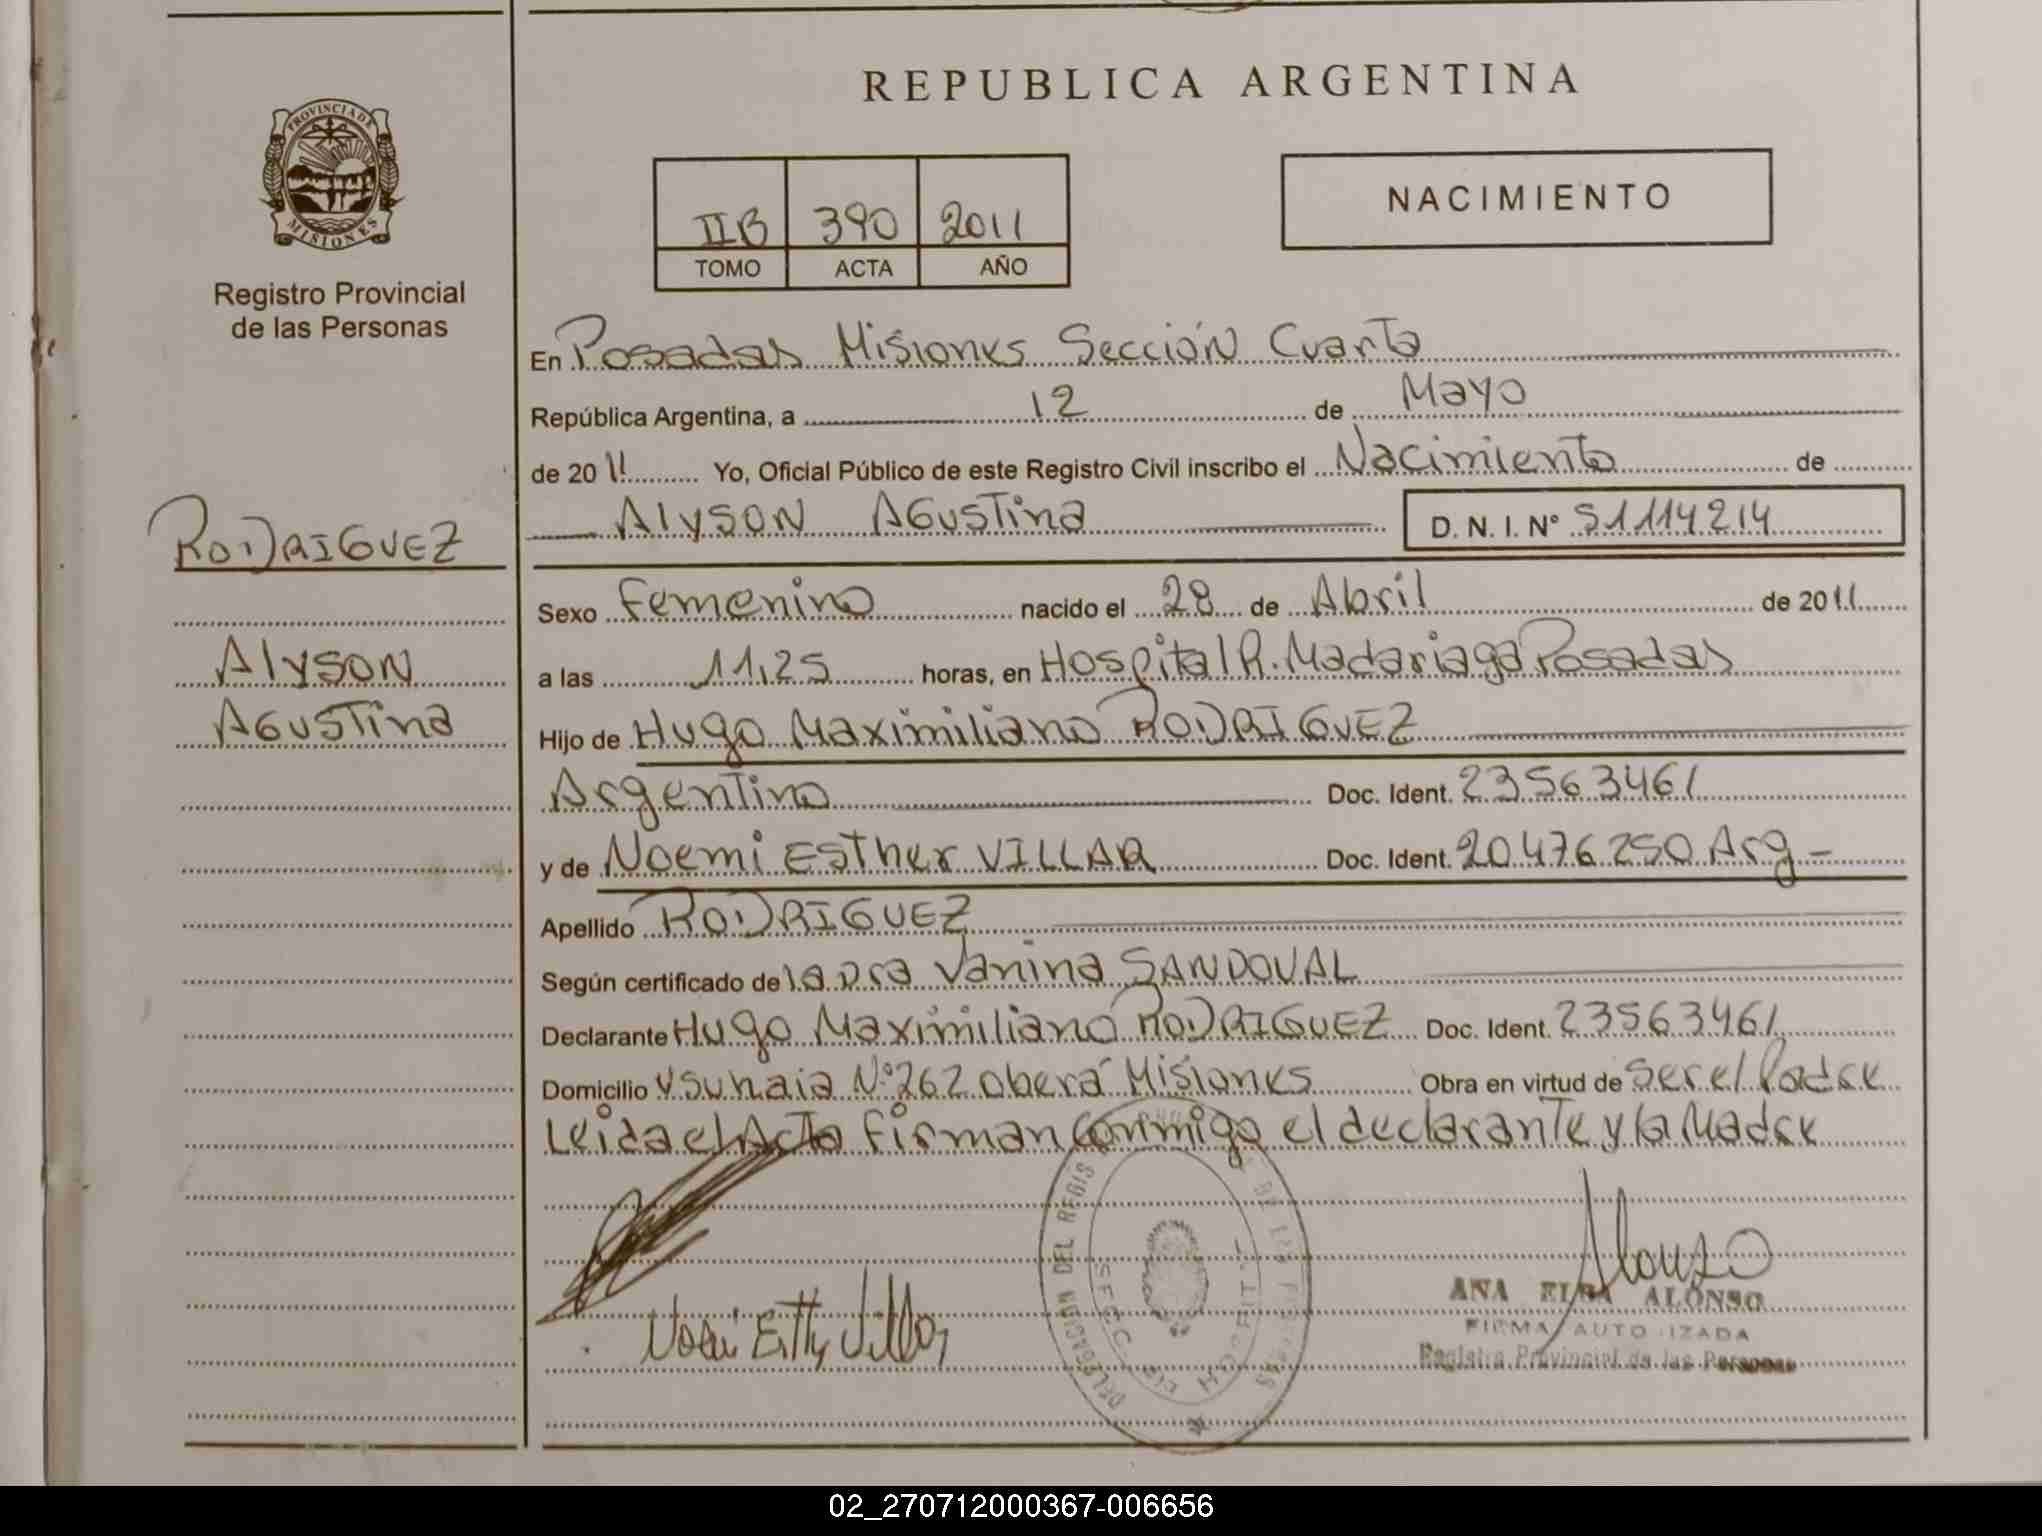 REPUBLICA ARGENTINA
PROVINCIA DE
MISIONES
Registro Provincial
de las Personas
IIB 390 2011
TOMO ACTA AÑO
NACIMIENTO
RODRIGUEZ
Alyson
Agustina
En Posadas Misiones Sección Cuarta
República Argentina, a 12 de Mayo
de 2011 Yo, Oficial Público de este Registro Civil inscribo el Nacimiento de
Alyson Agustina D. N. I. N° 51114214
Sexo Femenino nacido el 28 de Abril de 2011
a las 11,25 horas, en Hospital R. Madariaga Posadas
Hijo de Hugo Maximiliano RODRIGUEZ
Argentino Doc. Ident. 23563461
y de Noemi Esther VILLAR Doc. Ident. 20476250 Arg-
Apellido RODRIGUEZ
Según certificado de la Dra Vanina SANDOVAL
Declarante Hugo Maximiliano RODRIGUEZ Doc. Ident. 23563461
Domicilio Ysuhaia N°262 oberá Misiones Obra en virtud de Ser el Padre
Leida el Acta Firman Conmigo el declarante y la Madre
DELEGACION DEL REGIS
SECC.
HOSPIT
Alonso
ANA ELBA ALONSO
FIRMA AUTORIZADA
Registro Provincial de las Personas
02_270712000367-006656